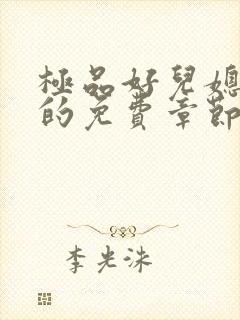 極品好兒媳
的免費章節
李光洙